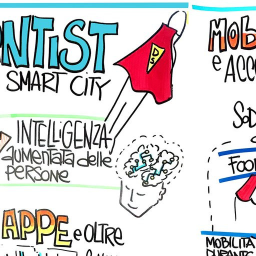 NTIST
SMART CITY
D
INTELLIGENZA
aumentata delle
PERSONE
APPE e OLTRE
MOB
e ACC
SOD
FOO
MOBILITA
DURANTE